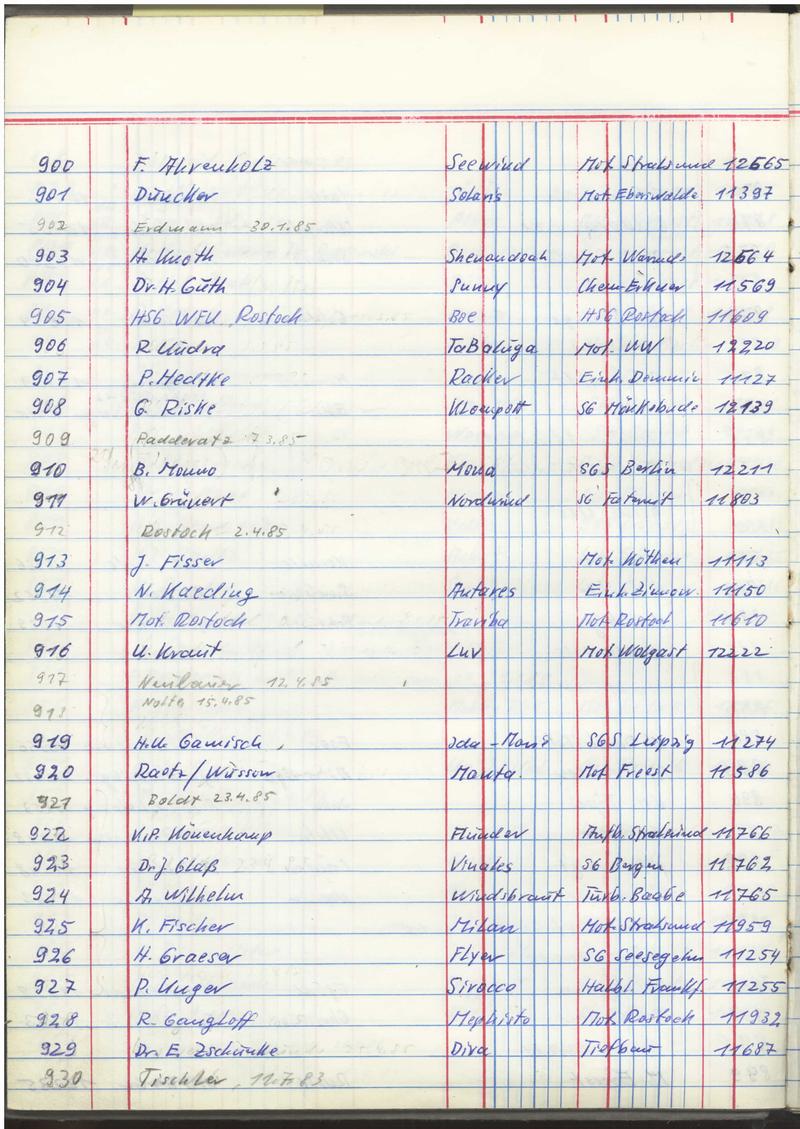 900 F. Ahrenholz Seewind Mot. Stralsund 12665
901 Düncker Solaris Mot Eberswalde 11397
902 Erdmann 30.1.85
903 H. Knoth Shenandoah Mot. Warnde 12664
904 Dr. H. Güth Sunny Chem. Erkner 11569
905 HSG WFU Rostock Boe HSG Rostock 11609
906 R. Kudra TaBaluga Mot. UW 12220
907 P. Hedtke Racker Einh. Demmin 11127
908 G. Riske Klompott SG Mönkebude 12139
909 Padderatz 7 3.85
910 B. Monno Mona SGS Berlin 12211
911 W. Grünert Nordwind SG 11803
912 Rostock 2.4.85
913 J. Fisser Mot. Köthen 11113
914 N. Kaeding Antares Einh. Zinnow. 11150
915 Mot. Rostock Mot. Rostock 11610
916 U. Kraut Luv Mot Wolgast 12222
917 Neubauer 12.4.85
918 Nolte 15.4.85
919 H.U. Gamisch Ida - SGS Leipzig 11274
920 Raetz/Wüssow Manta. Mot Freest 11586
921 Boldt 23.4.85
922 K.P. Hönenkamp Flunder Aufb. Stralsund 11766
923 Dr. J. Glaß Vinales SG Bergen 11762
924 A. Wilhelm Windsbraut Turb. Baabe 11765
925 K. Fischer Milan Mot. Stralsund 11959
926 H. Graeser Flyer SG Seesegeln 11254
927 P. Unger Sirocco Halbl. Frankf. 11255
928 R. Gangloff Mephisto Mot. Rostock 11932
929 Dr. E. Zschunke Diva Tiefbau 11687
930 Tischler, 11.7.83